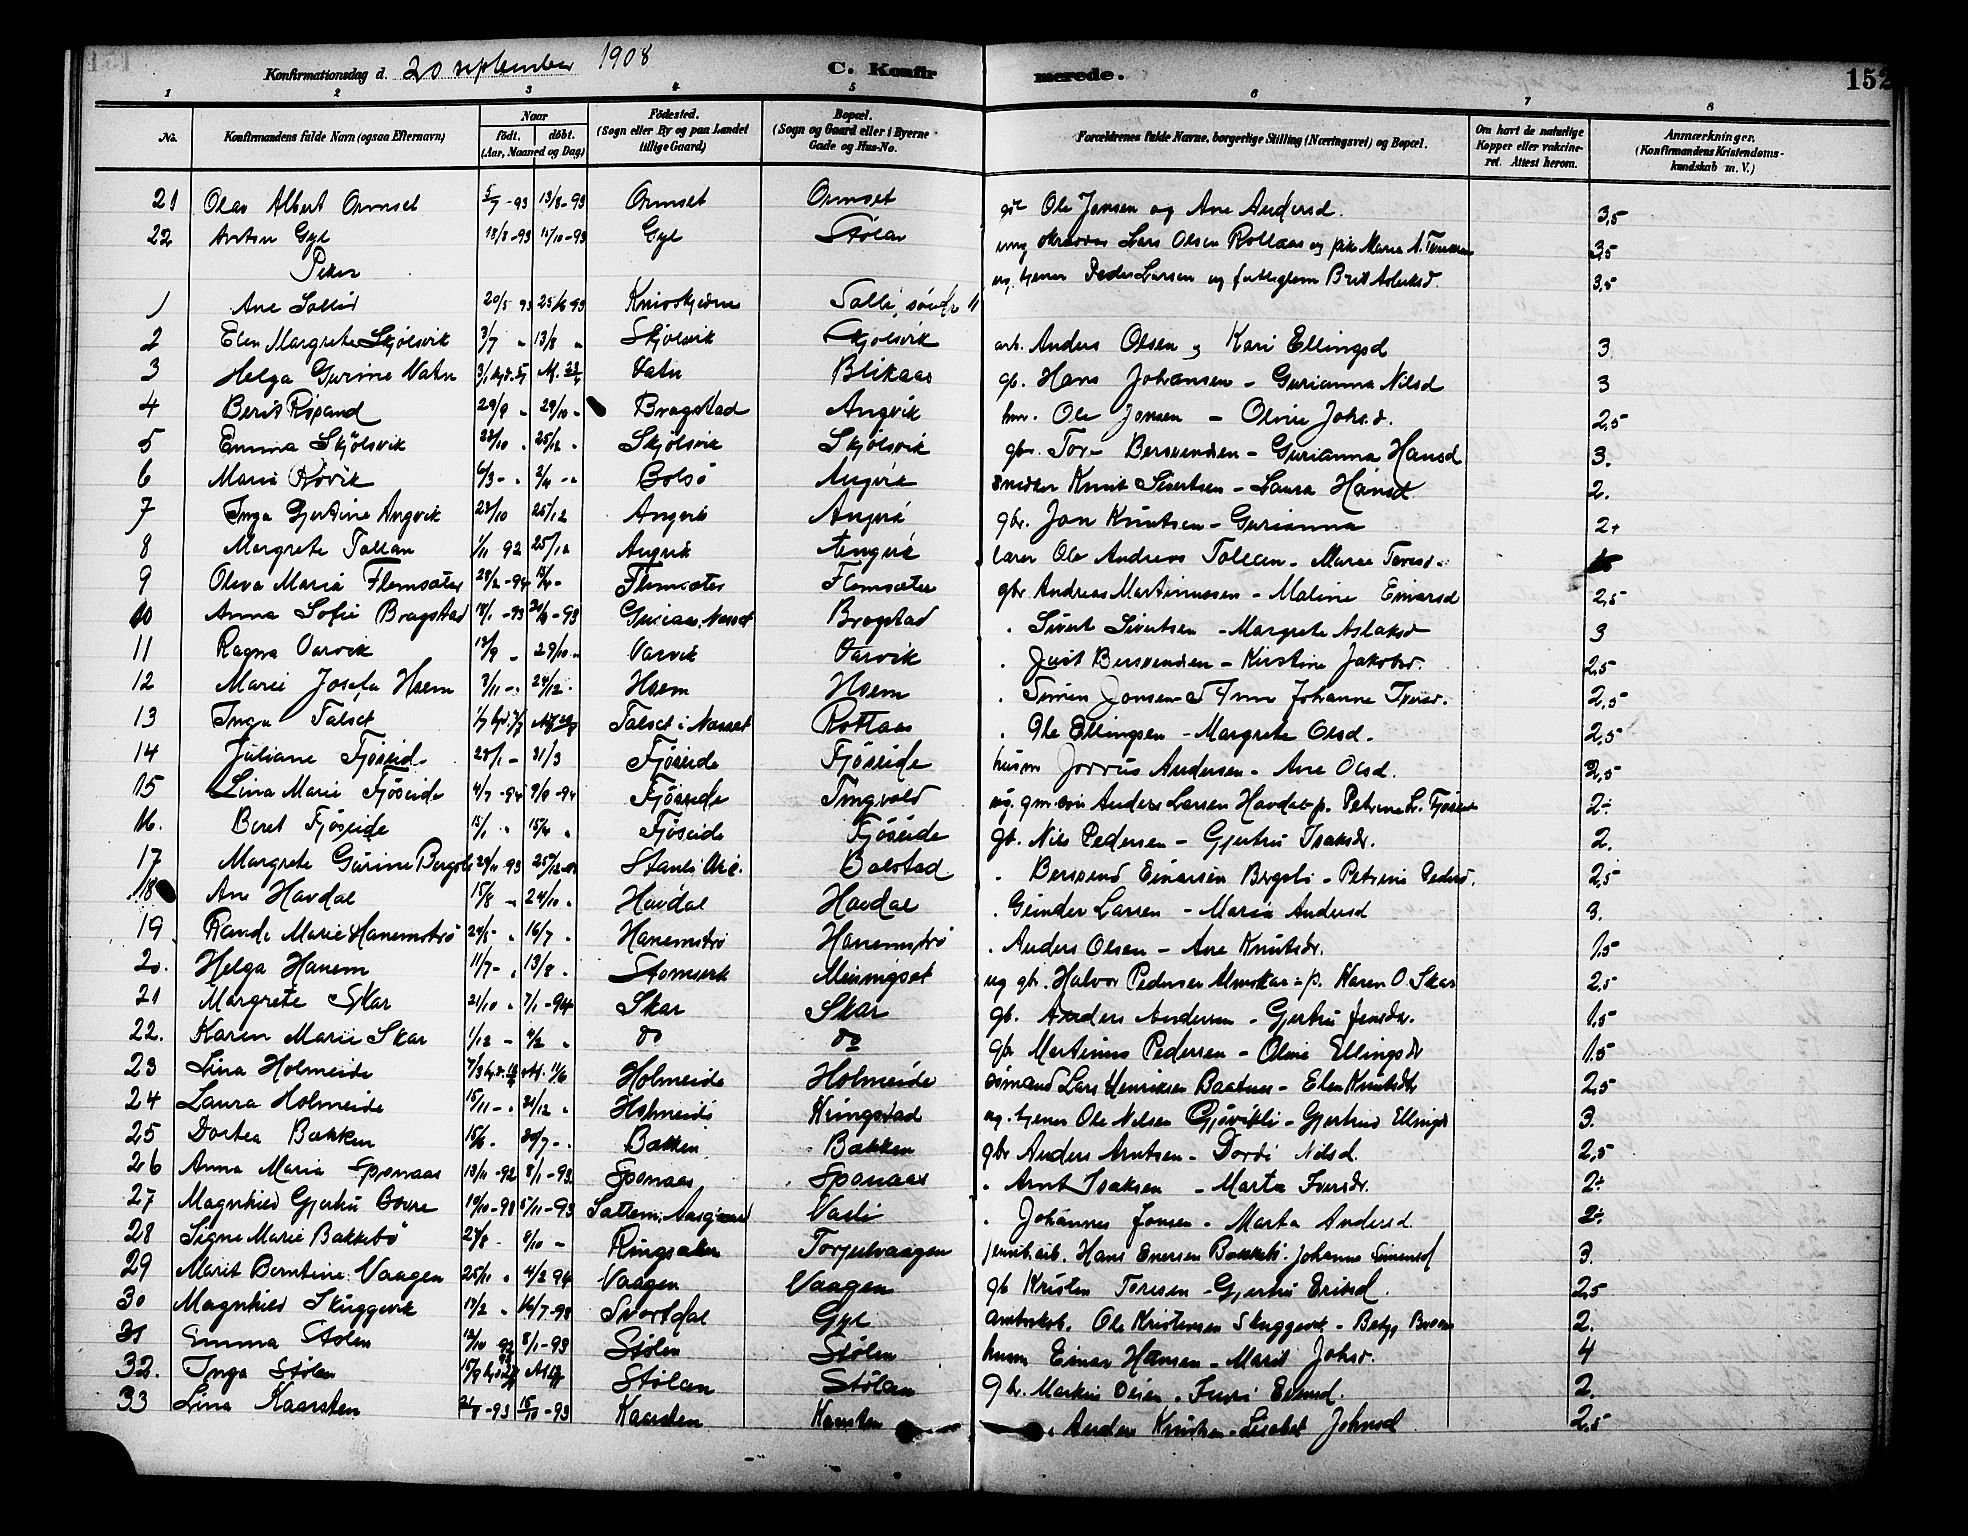 Konfirmationsdag d. 20 september 1908 C. Konfirmerede. 152
1 2 3 4 5 6 7 8
No. Konfirmandens fulde Navn (ogsaa Efternavn) Naar født. døbt. (Aar, Maaned og Dag) Fødested. (Sogn eller By og paa Landet tillige Gaard) Bopæl. (Sogn og Gaard eller i Byerne Gade og Hus-No. Forældrenes fulde Navne, borgerlige Stilling (Næringsvei) og Bopæl. Om havt de naturlige Kopper eller vaccineret. Attest herom. Anmærkninger. (Konfirmandens Kristendomskundskab m. V.)
21 Olav Albert Ormset 5/7-93 13/8-93 Ormset Ormset Ole Jonsen og Ane Andersd. 3,5
22 Anton Gyl 18/8-93 15/10-93 Gyl Stølan ung. Lars Olsen Rottaas og pike Maren 3,5
Piker ug. tjener Peder Larsen og Brit Aslaksd. 3,5
1 Ane Sollid 20/5 93 25/6 93 Knivskjedne Salli, søndr
2 Elen Margrete Skjølsvik 3/7 " 13/8 " Skjølsvik Skjølsvik arb. Anders Olsen og Kari Ellingsd 3
3 Helga Gurine Vatn Vatn Blikaas gb. Hans Johansen - Gurianna Nilsd 3
4 Berit Risand 29/9 - 29/10 - Bragstad Angvik hm. Ole Jonsen - Oline Johsd. 2,5
5 Emma Skjølsvik 22/10 " 25/12 " Skjølsvik Skjølsvik gbr. Tore Bersvendsen - Gurianna Hansd 3.
6 Marie Røvik 6/3 - " 2/4 - " Bolsø Angvik snedker Knut Sivertsen - Laura Hansd. 2.
7 Inga Gjertine Angvik 23/10 25/12 Angvik Angvik gbr. Jon Knutsen - Gurianna 2+
8 Margrete Tollan 1/11 92 25/12 Angvik Angvik lærer Ole Andreas Tollan - Marie Toresd.
9 Oleva Maria Flemsæter 28/2-94 Flemsæter Flemsæter gbr. Andreas Martinussen - Maline Einarsd 2,5
10 Anna Sofie Bragstad 18/1-93 Nesset Bragstad " Sivert Sivertsen - Margrete Aslaksd 3
11 Ragna Varvik 12/9 - 29/10 - Varvik Varvik " Just Bersvendsen - Kirstine Jakobsd. 2,5
12 Marie Josefa Hoem 3/11 - " 24/12 " Hoem Hoem " Simen Jonsen Johanne Iversd. 2,5
13 Inga Talset Talset i Nesset Rottaas " Ole Ellingsen - Margrete Olsd. 2,5
14 Juliane Fjøseid 28/1 - 31/3 Fjøseide Fjøseide husm Andersen - Ane Olsd. 2,5
15 Lina Marie Fjøseide 4/7-94 9/9-94 Fjøseide Tingvold ug. Anders Larsen Havdal - p. Petrine L. Fjøseide 2-
16. Beret Fjøseide 15/1 " 15/4 " Fjøseide Fjøseide gb. Nils Pedersen - Gjertru Isaksdr. 2.
17 Margrete Gurine Bergsli 29/11 93 25/12 Balstad " Bersvend Einarsen Bergsli - Petrine Pedersd. 2,5
18 Ane Havdal 15/8 - 24/10 " Havdal Havdal " Gunder Larsen - Maria Andersd 3.
19 Randi Marie Hanemstrø 24/5 " 16/7 " Hanemstrø Hanemstrø " Anders Olsen - Ane Knutsdr. 1,5
20. Helga Hanem 11/7 - " 13/8 " Meisingset ug gbr. Halvor Pedersen - p. Karen O. Skar 2,5
21 Margrete Skar 21/10 " 7/1-94 Skar Skar gb. Anders Andersen - Gjertru Jensdr. 1,5
22. Karen Marie Skar 1/12 - 4/2 " do do gbr Martinus Pedersen - Oline Ellingsdr 1,5
23 Lina Holmeide Holmeide Holmeide sømand Lars Henriksen - Elen Knutsdtr 2,5
24 Laura Holmeide 15/11 - " 21/12 " Holmeide Kringstad ug. tjener Ole Nilsen Gjøvikli - Gjertrud Ellingsd 3.
25 Dortea Bakken Bakken Bakken gbr Anders Arntsen - Dordi Nilsd. 2,5
26 Anna Maria Sponaas 13/11-92 8/1-93 Sponaas Sponaas " Arnt Isaksen - Marta Iversdr. 2÷
27 Magnhild Gjertru 5/11-93 Vasli " Johannes Jonsen - Marta Andersd 2÷
28 Signe Marie Bakkebø 27/8 - 8/10 - Ringsaker Torjulvaagen jernb.arb. Hans Iversen Bakkebø - Johanne Simensd 3.
29 Marit Berntine Vaagen 25/11 " 4/2 94 Vaagen Vaagen gb Kristen Toresen - Gjertru Eriksd. 2,5
30 Magnhild Skuggevik 17/2 " 16/7-93 Svortdal Gyl Ole Kristensen Skuggevik 2.
31 Emma Stølen 12/10 92 8/1-93 Stølen Stølen husm Einar Hansen - Marit Johsd. 4
32. Inga Stølan Stølan Stølan gbr. 2.
33 Lina Kaarsten Kaarsten Kaarsten " Anders Knutsen - Lisabet Johnsd 2,5